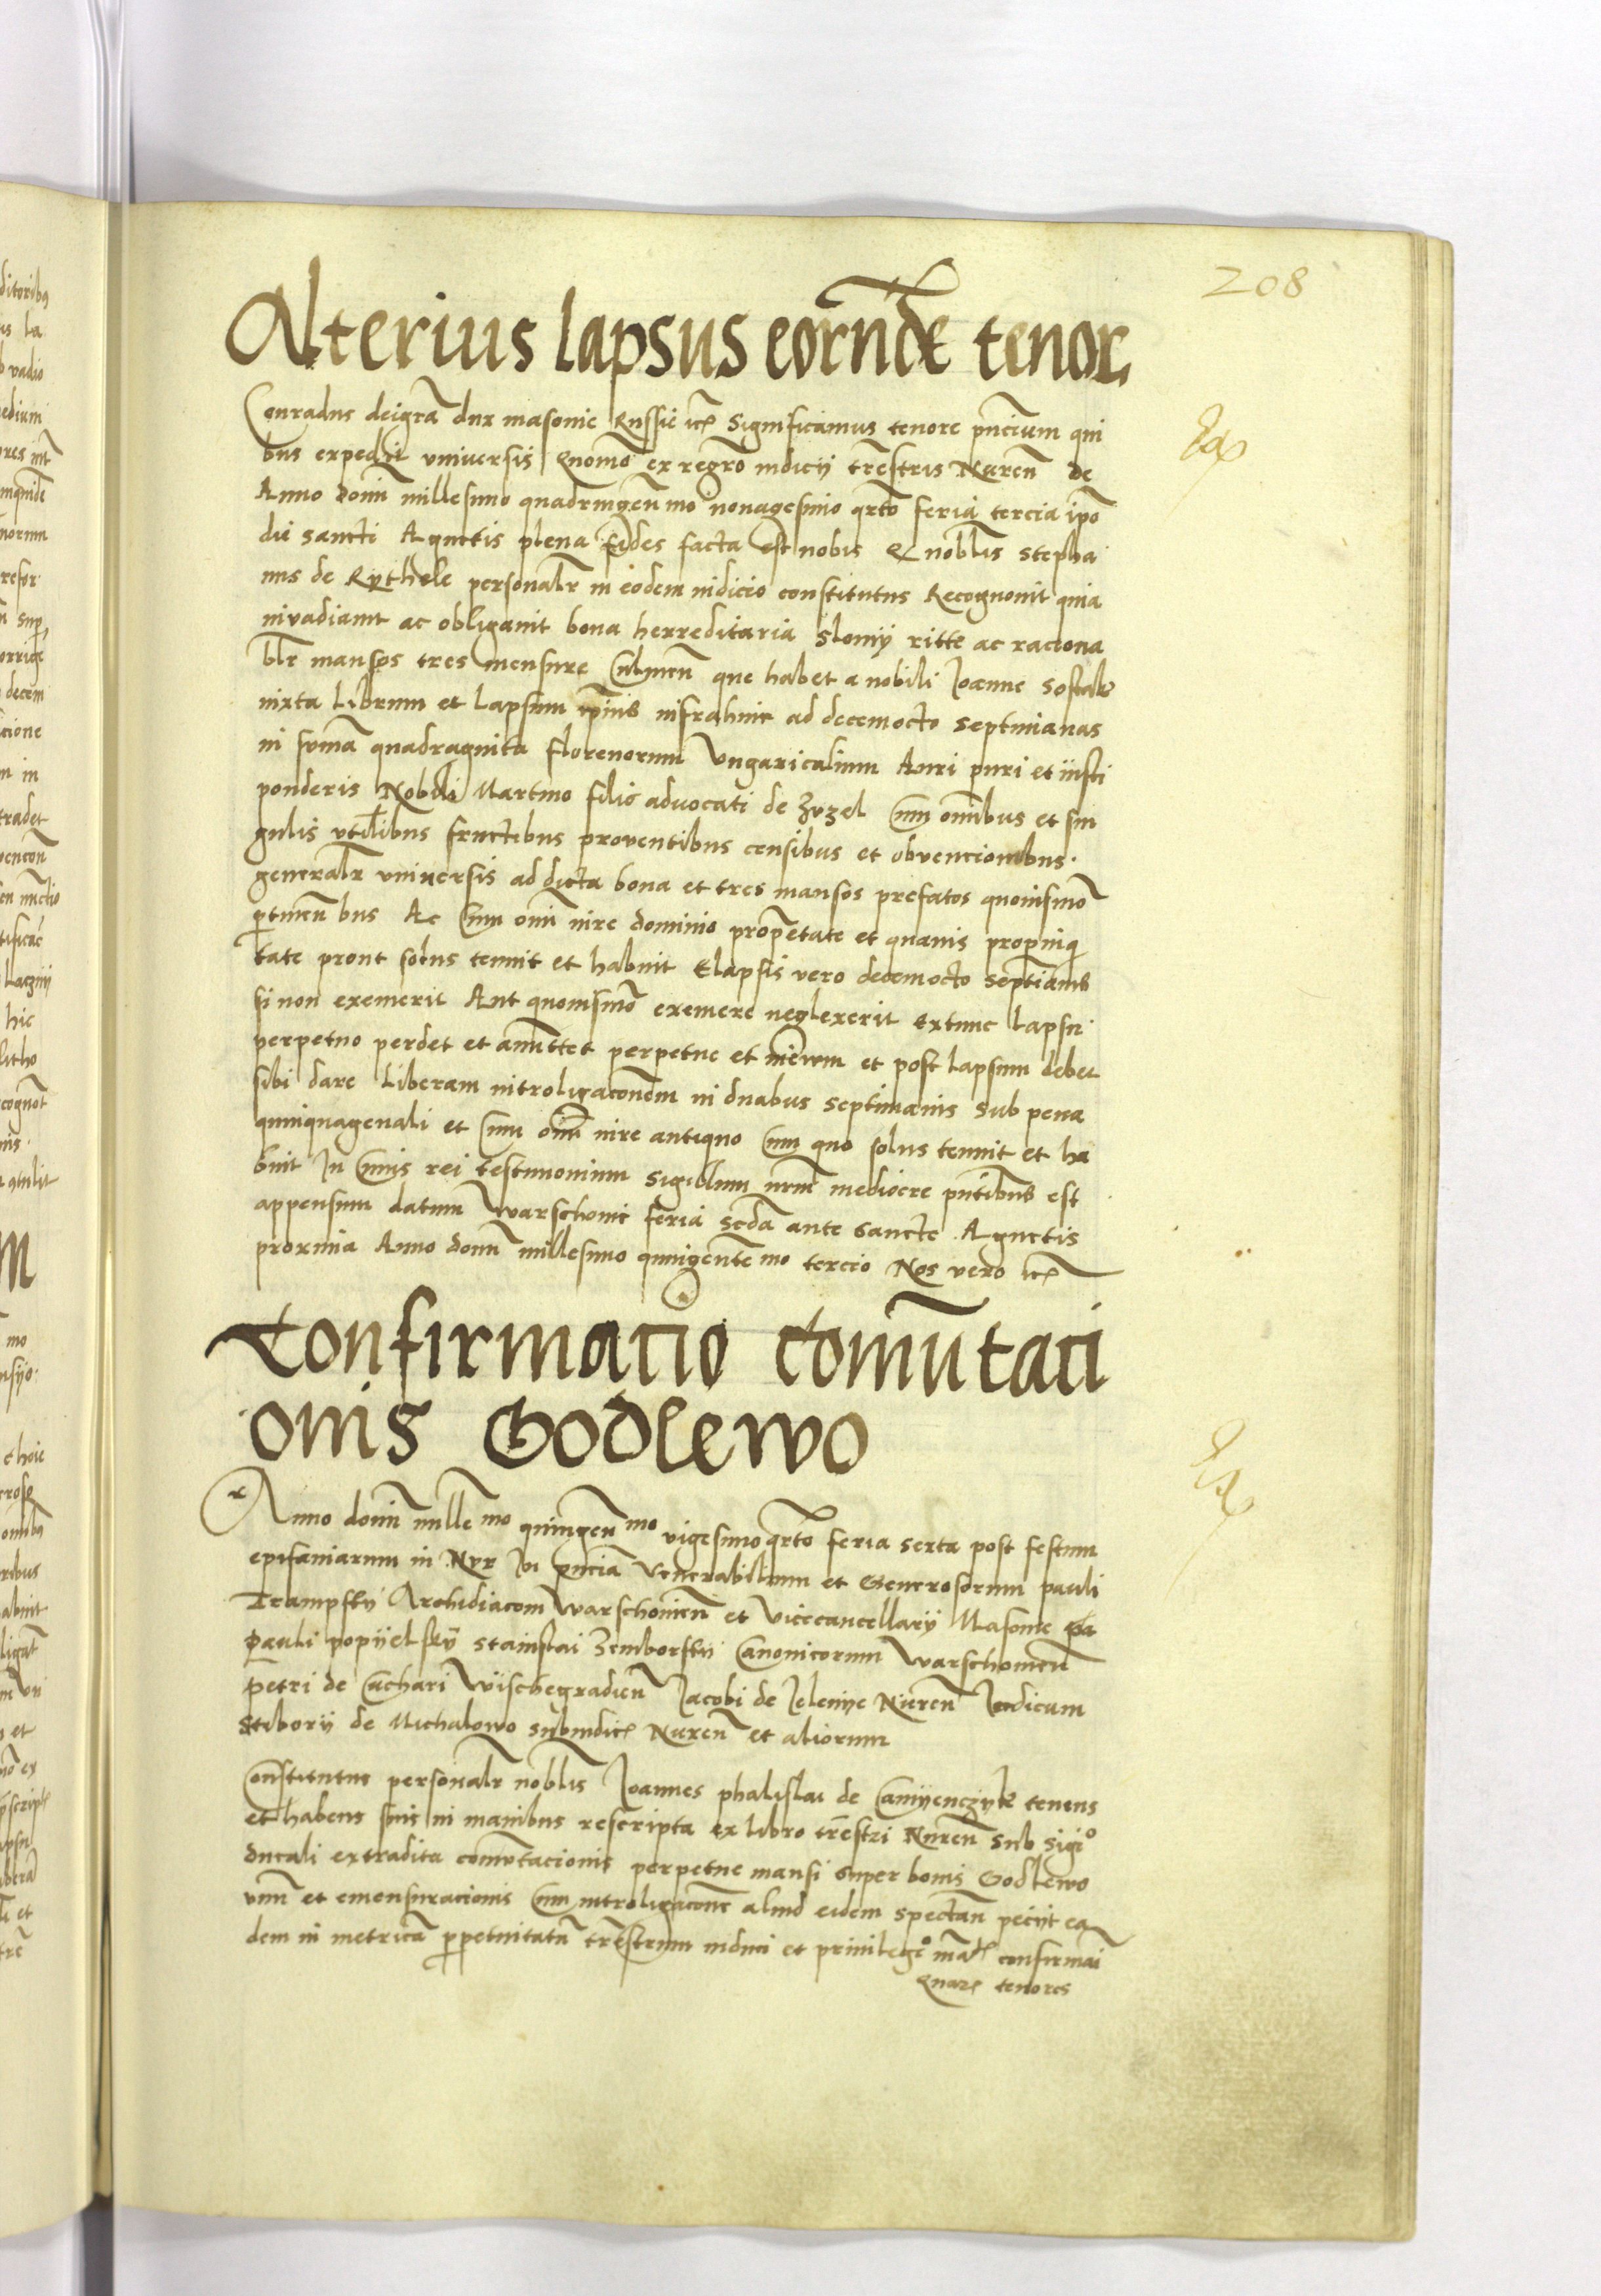 208
Alterius lapsus eorūnde tenor
Conradus dei grā dux masovie Russie etc Significamus tenore pn̄cium qui
bus expedit universis Quomō ex regrō iudicij trēstris Nuren̄ de
Anno domī millesimo quadringen̄mo nonagesimo qrto feria tercia ipō
die sancti Agnetis plena fides facta est nobis Q nobīlis Stepha
nus de Rythele personalr̄ in eodem iudicio constitutus Recognovit quia
invadiavit ac obligavit bona herreditaria Slomy ritte ac raciona
blr̄ mansos tres mensure Culmen̄ que habet a nobili Joanne
iuxta Librum et Lapsum ip̄ius infrahinc ad decemocto septimanas
in sumā quadraginta florenorum Ungaricalium Auri puri et iusti
ponderis Nobili Martino filio advocati de Zuzel Cum omnibus et sin
gulis utilibus fructibus proventibus censibus et obvencionibus
generalr̄ universis ad dicta bona et tres mansos prefatos quovismō
ptinen̄bus Ac Cum omī iure dominio proprietate et quavis propinq
tate prout solus tenuit et habuit Elapsis vero decemocto septianis
si non exemerit Aut quovismō exemere neglexerit extunc lapsu
perpetuo perdet et amittet perpetue et in evum et post lapsum debet
sibi dare Liberam intrologacōnem in duabus septimanis sub pena
quinquagenali et Cum omī iure antiquo Cum quo solus tenuit et ha
buit In Cuius rei testimonium Sigillum nrm̄ mediocre pn̄tibus est
appensum datum Warschovie feria scda ante sancte Agnetis
proxima Anno domī millesimo quingentēmo tercio Nos vero etc
Confirmacio Comūtaci
onis Godlewo
Anno domī millēmo quingen̄mo vigesimoqrto feria sexta post festum
epifaniarum in Nur In pn̄cia Venerabilium et Generosorum pauli
Trampsky Archidiaconi Warschovien̄ et Vicecancellarij Masovie
Pauli popijelsky Stanislai Zemborsky Canonicorum Warschovien̄
Petri de Cachari Wischegradien̄ Jacobi de Jelenye Nuren̄ Iudicum
Stiborij de Michalowo Subiudic Nuren̄ et aliorum
Constitutus personalr̄ noblīs Joannes phalislai de Camyenczyk tenens
et habens suis in manibus rescripta ex libro trēstri Nuren̄ sub sigio
ducali extradita comutacionis perpetue mansi super bonis Godlewo
unī et emensuracionis Cum introligacōne aliud eidem spectan̄ peciit ea
dem in metricā ppetuitatū trēstrium induci et privilegō mal confirmai
Quar tenores